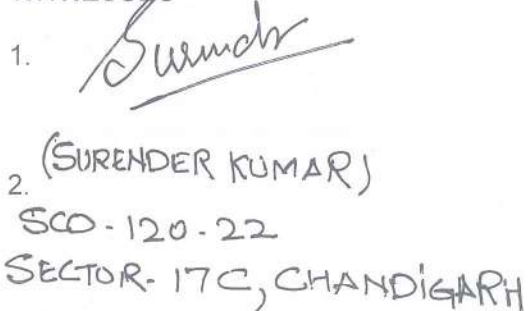 1. Surender
(SURENDER KUMAR)
2.
SCO - 120 - 22
SECTOR - 17C, CHANDIGARH